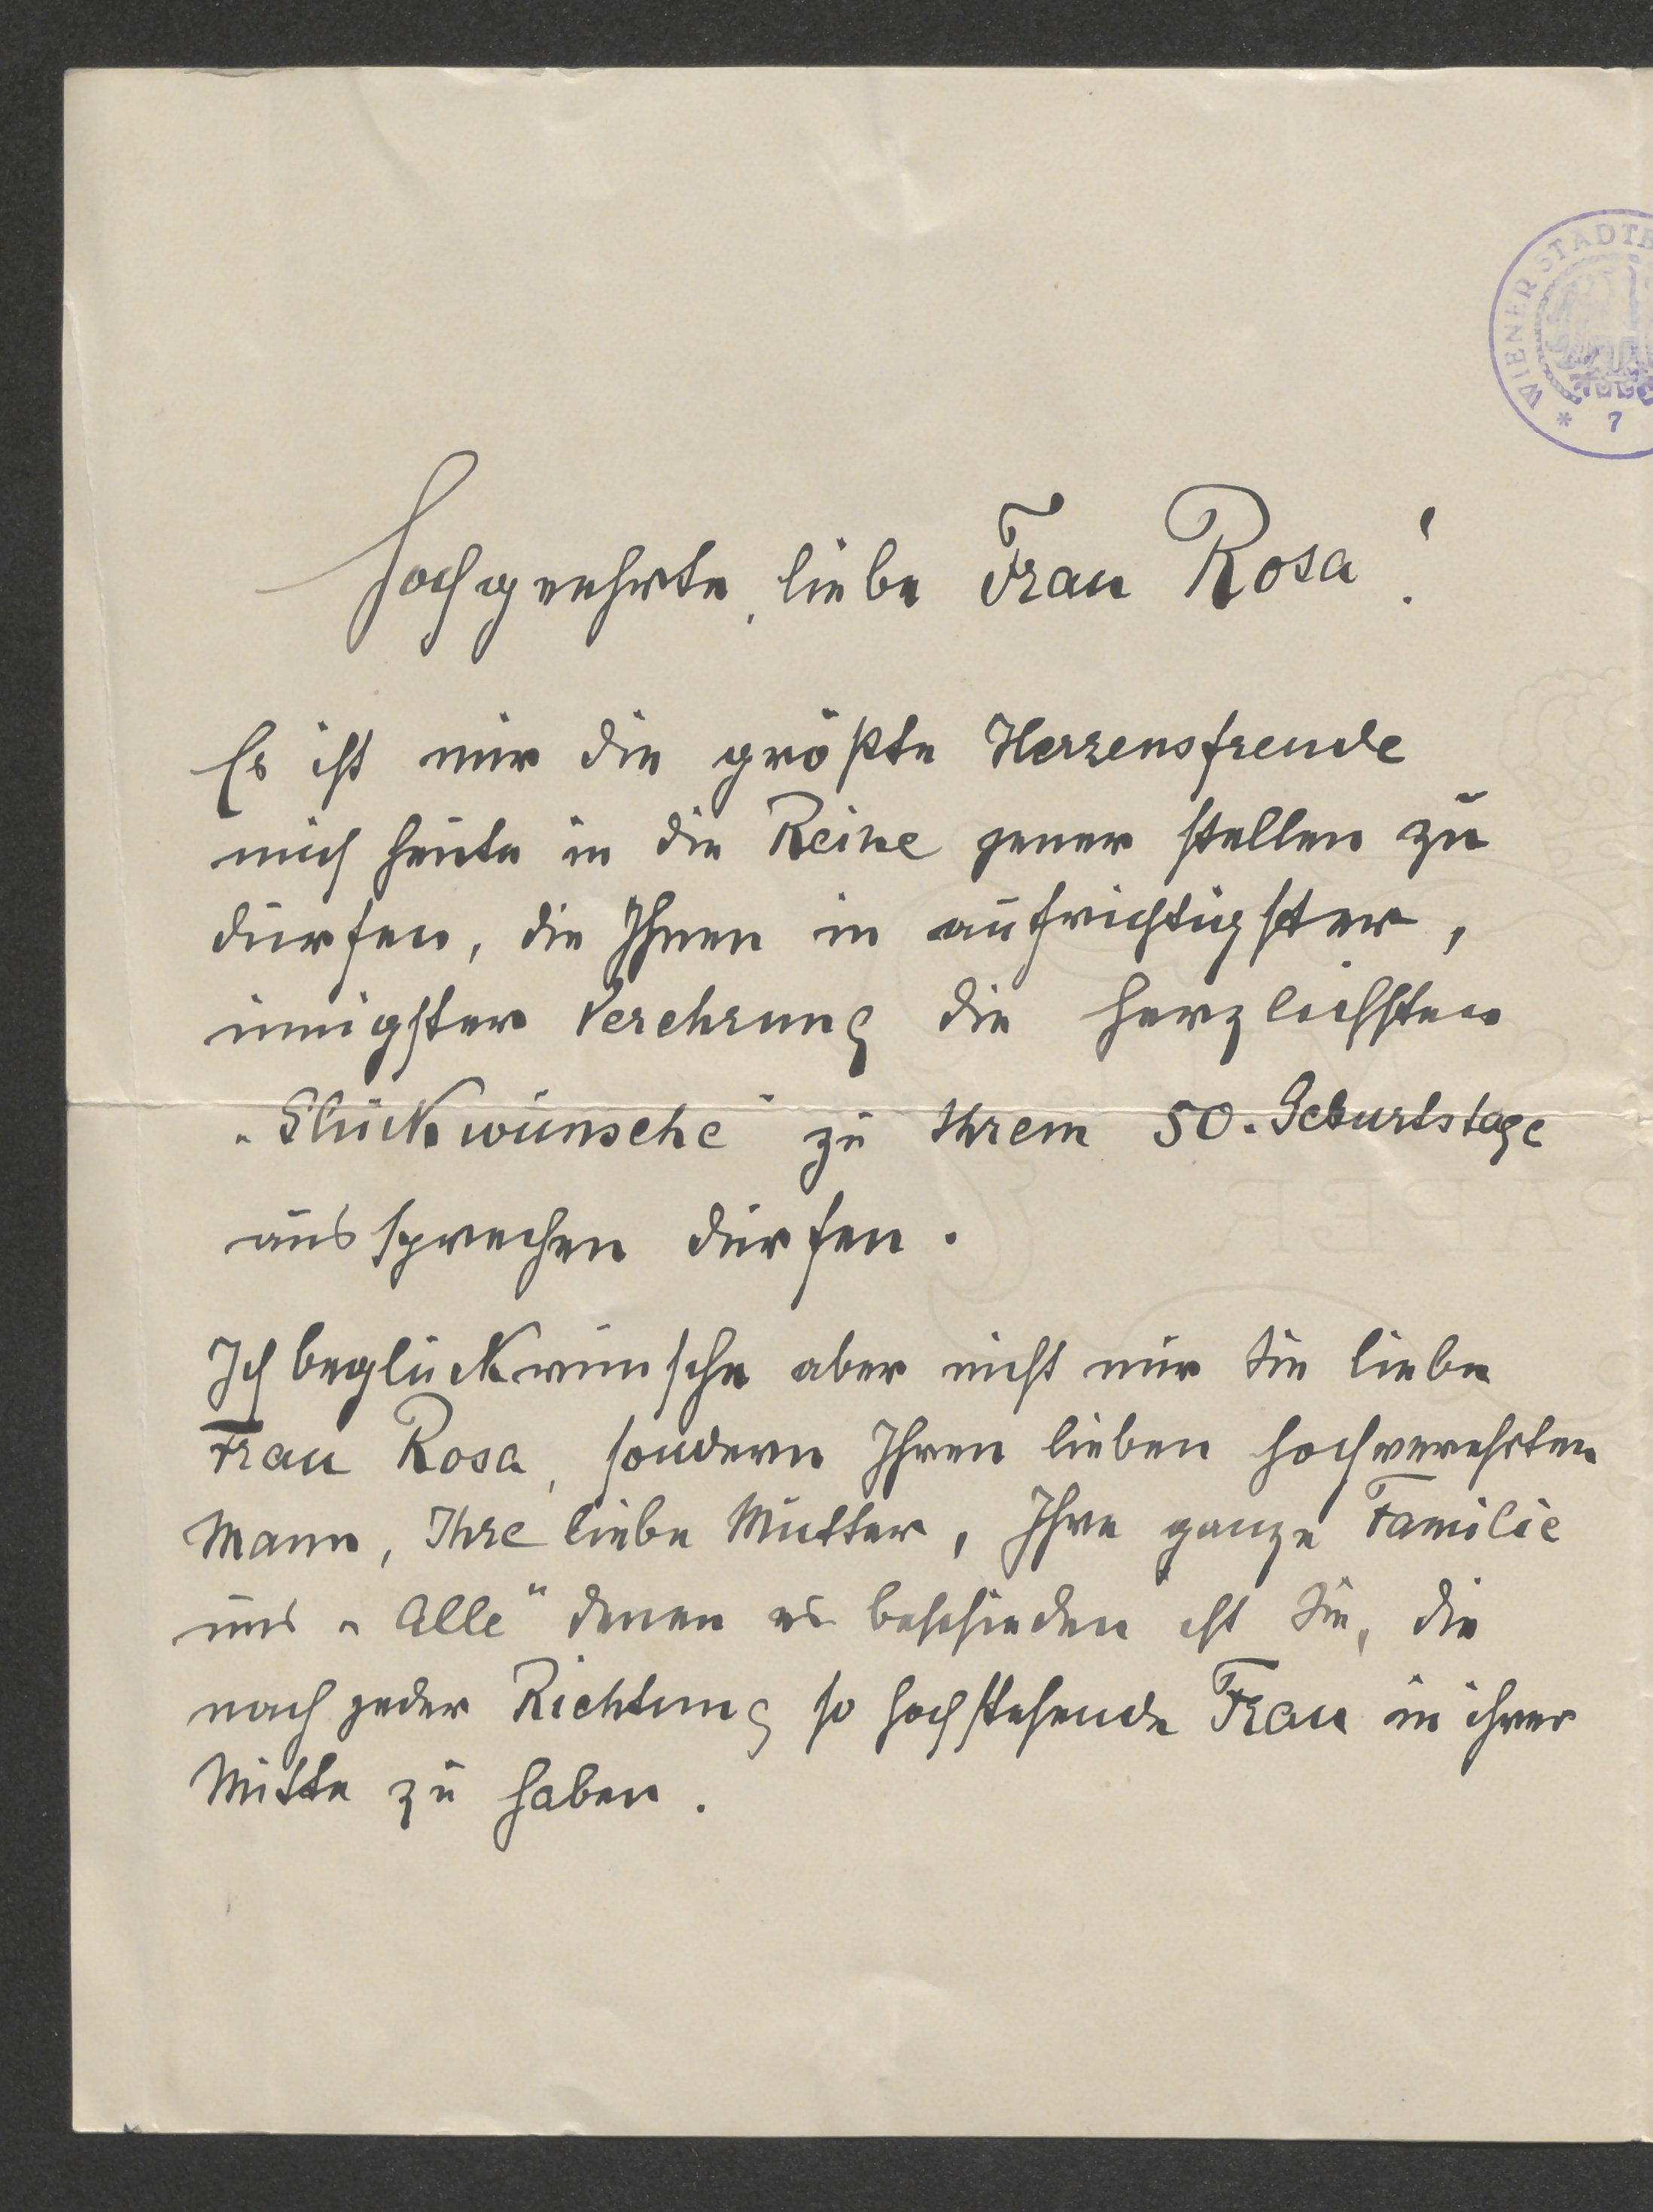 WIENER STADTB
* 7
Hochgeehrte, liebe Frau Rosa!
Es ist mir die größte Herzensfreude
mich heute in die Reihe jener stellen zu
dürfen, die Ihnen in aufrichtigster,
innigster Verehrung die herzlichsten
„Glückwünsche“ zu Ihrem 50. Geburtstage
aussprechen dürfen.
Ich beglückwünsche aber nicht nur Sie liebe
Frau Rosa, sondern Ihren lieben hochverehrten
Mann, Ihre liebe Mutter, Ihre ganze Familie
uns „Alle“ denen es beschieden ist Sie, die
nach jeder Richtung so hochstehende Frau in ihrer
Mitte zu haben.